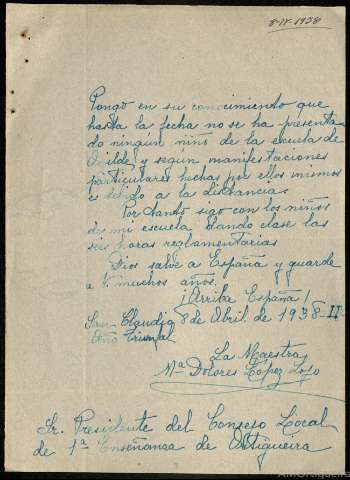 8-IV-1938
Pongo en su conocimiento que
hasta la fecha no se ha presenta-
do ningún niño de la escuela de
y según manifestaciones
particulares hechas por ellos mismos
es debido a la distancias
Por tanto sigo con los niños
de mi escuela dando clase las
seis horas reglamentarias
Dios salve a España y guarde
a V. muchos años.
¡Arriba España!
San Claudio 8 de Abril de 1938-II-
Año Triunfal
La Maestra
Mª Dolores López
Sr. Presidente del Consejo Local
de 1ª Enseñanza de Ortigueira